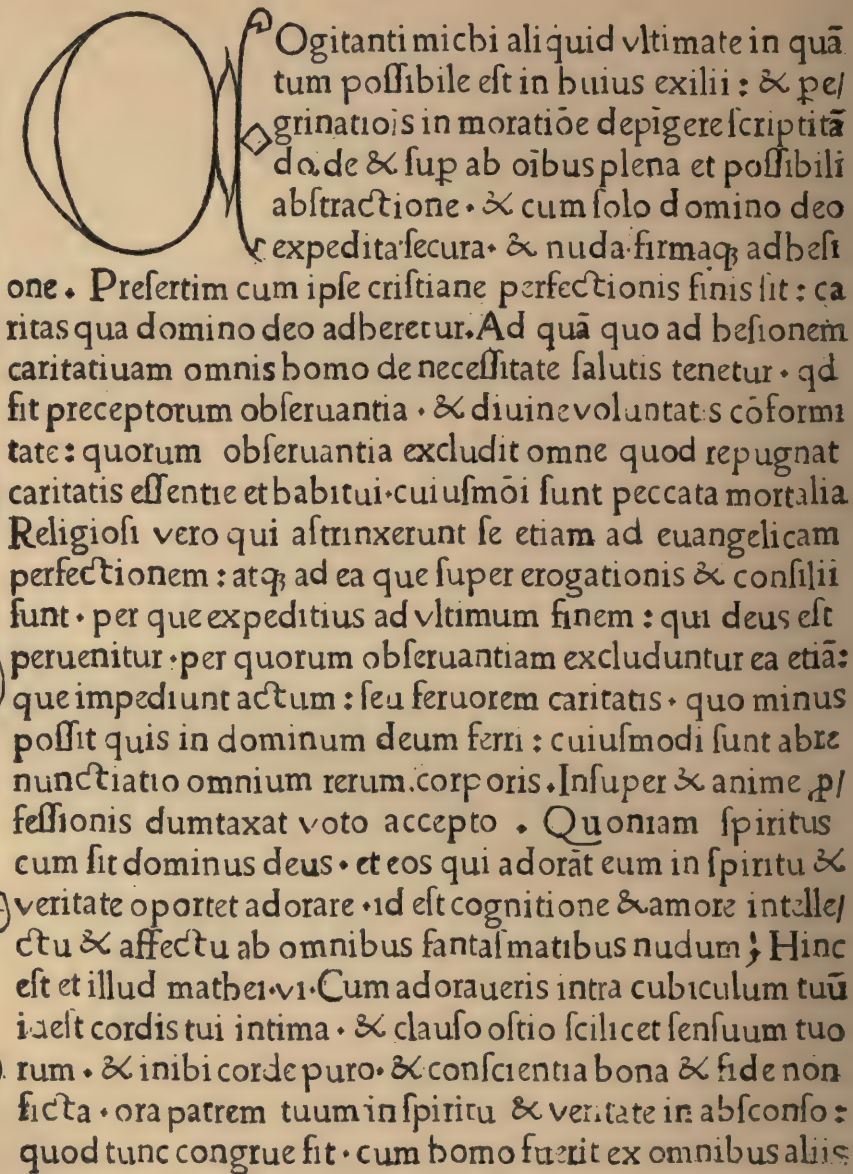 COgitanti michi aliquid vltimate in quā
tum poſſibile eſt in huius exilii : & pe/
grinatiōis in moratiōe depīgere ſcriptitā
do. de & ſuꝑ ab oībus plena et poſſibili
abſtractione · & cum ſolo domino deo
expedita · ſecura · & nuda · firmaqꝫ adheſi
one . Preſertim cum ipſe criſtiane perfectionis finis ſit : ca
ritas qua domino deo adheretur. Ad quā quo ad heſionem
caritatiuam omnis homo de neceſſitate ſalutis tenetur · qd
fit preceptorum obſeruantia · & diuine voluntatis cōformi
tate : quorum obſeruantia excludit omne quod repugnat
caritatis eſſentie et habitui · cuiuſmōi ſunt peccata mortalia
Religioſi vero qui aſtrinxerunt ſe etiam ad euangelicam
perfectionem : atqꝫ ad ea que ſuper erogationis & conſilii
ſunt · per que expeditius ad vltimum finem : qui deus eſt
peruenitur · per quorum obſeruantiam excluduntur ea etiā :
que impediunt actum : ſeu feruorem caritatis · quo minus
poſſit quis in dominum deum ferri : cuiuſmodi ſunt abre
nunctiatio omnium rerum . corporis . Inſuper & anime ꝓ/
feſſionis dumtaxat voto accepto . Quoniam ſpiritus
cum ſit dominus deus · et eos qui adorāt eum in ſpiritu &
veritate oportet adorare · id eſt cognitione & amore intelle/
ctu & affectu ab omnibus fantaſmatibus nudum ; Hinc
eſt et illud mathei · vi · Cum adoraueris intra cubiculum tuū
id eſt cordis tui intima · & clauſo oſtio ſcilicet ſenſuum tuo
rum · & inibi corde puro · & conſcientia bona & fide non
ficta · ora patrem tuum in ſpiritu & veritate in abſconſo :
quod tunc congrue fit · cum homo fuerit ex omnibus aliis